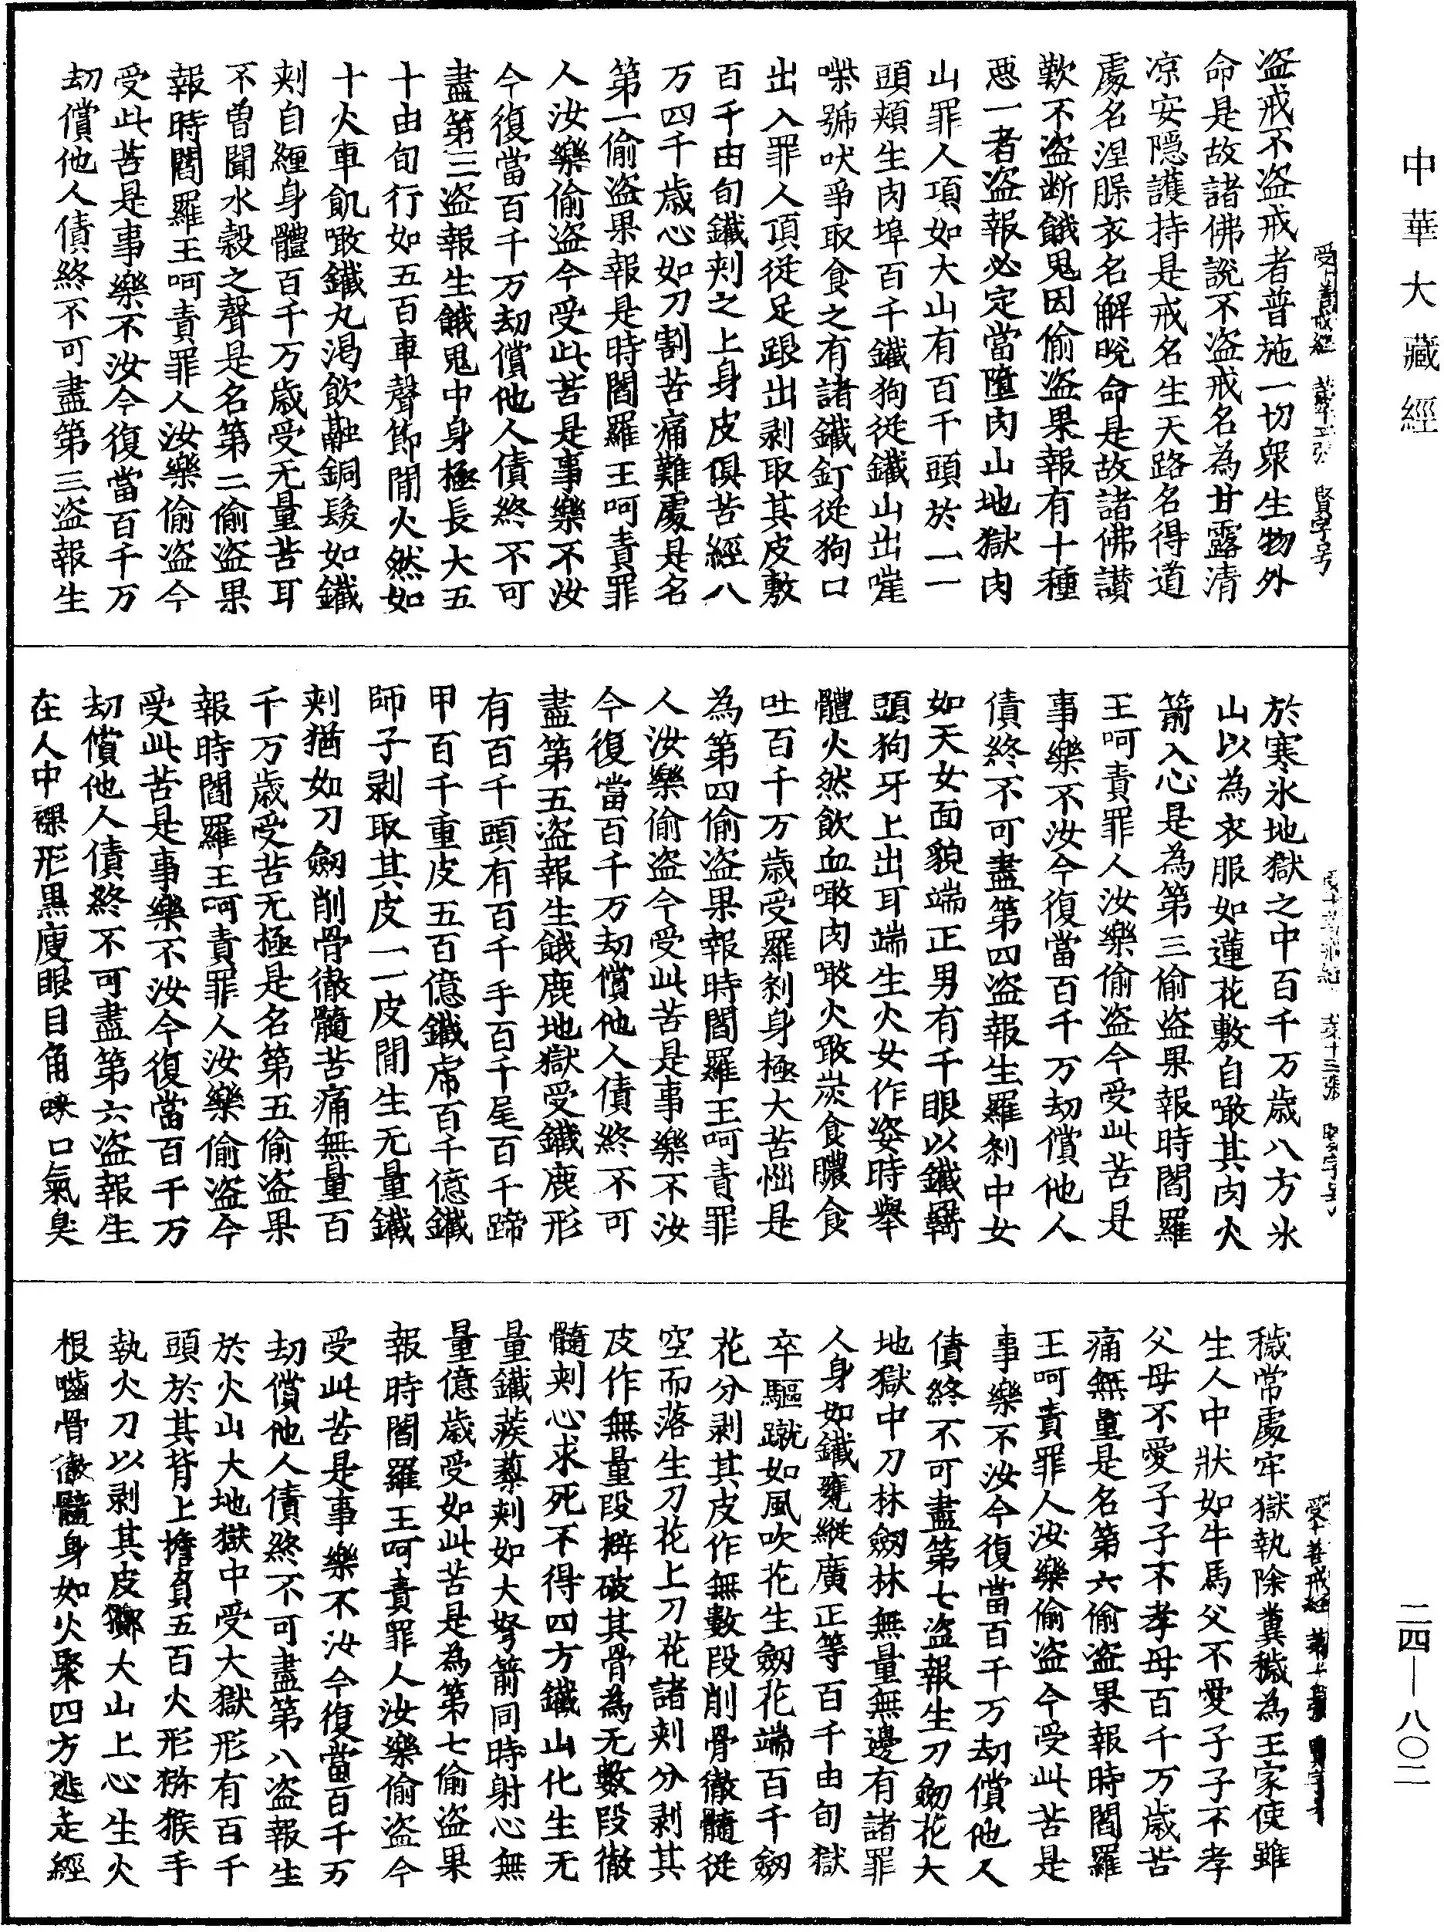 中華大藏經
盗戒不盗戒者普施一切衆生物外
命是故諸佛說不盗戒名為甘露清
凉安隱護持是戒名生天路名得道
處名涅槃衣名解脫命是故諸佛讃
歎不盗断餓鬼因偷盗果報有十種
惡一者盗報必定當墮肉山地獄肉
山罪人項如大山有百千頭於一一
頭頰生肉埠百千鐵狗從鐵山出嘊
喍號吠爭取食之有諸鐵釘從狗口
出入罪人頂從足跟出剥取其皮敷
百千由旬鐵刾之上身皮俱苦經八
万四千歳心如刀割苦痛難處是名
第一偷盗果報是時閻羅王呵責罪
人汝樂偷盗今受此苦是事樂不汝
今復當百千万劫償他人債終不可
盡第二盗報生餓鬼中身極長大五
十由旬行如五百車聲節間火然如
十火車飢噉鐵丸渴飲融銅髮如鐵
刾自纏身體百千万歳受无量苦耳
不曾聞水穀之聲是名第二偷盗果
報時閻羅王呵責罪人汝樂偷盗今
受此苦是事樂不汝今復當百千万
劫償他人債終不可盡第三盗報生
受十善戒經 第十二張 賢字号
於寒氷地獄之中百千万歳八方氷
山以為衣服如蓮花敷自噉其肉火
箭入心是為第三偷盗果報時閻羅
王呵責罪人汝樂偷盗今受此苦是
事樂不汝今復當百千万劫償他人
債終不可盡第四盗報生羅刹中女
如天女面貌端正男有千眼以鐵羇
頭狗牙上出耳端生火女作姿時舉
體火然飲血噉肉噉火噉炭食膿食
吐百千万歳受羅刹身極大苦惱是
為第四偷盗果報時閻羅王呵責罪
人汝樂偷盗今受此苦是事樂不汝
今復當百千万劫償他人債終不可
盡第五盗報生餓鹿地獄受鐵鹿形
有百千頭有百千手百千尾百千蹄
甲百千重皮五百億鐵虎百千億鐵
師子剥取其皮一一皮間生无量鐵
刾猶如刀劒削骨徹髓苦痛無量百
千万歳受苦无極是名第五偷盗果
報時閻羅王呵責罪人汝樂偷盗今
受此苦是事樂不汝今復當百千万
劫償他人債終不可盡第六盗報生
在人中裸形黒廋眼目角睞口氣臭
受十善戒經 第十三張 賢字号
穢常處牢獄執除糞穢為王家使雖
生人中狀如牛馬父不愛子子不孝
父母不愛子子不孝母百千万歳苦
痛無量是名第六偷盗果報時閻羅
王呵責罪人汝樂偷盗今受此苦是
事樂不汝今復當百千万劫償他人
債終不可盡第七盗報生刀劒花大
地獄中刀林劒林無量無邊有諸罪
人身如鐵甕縱廣正等百千由旬獄
卒驅蹴如風吹花生劒花端百千劒
花分剥其皮作無數段削骨徹髓從
空而落生刀花上刀花諸刾分剥其
皮作無量段擗破其骨為无數段徹
髓刾心求死不得四方鐵山化生无
量鐵蒺䔧刾如大弩箭同時射心無
量億歳受如此苦是為第七偷盗果
報時閻羅王呵責罪人汝樂偷盗今
受此苦是事樂不汝今復當百千万
劫償他人債終不可盡第八盗報生
於火山大地獄中受大獄形有百千
頭於其背上擔負五百火形猕猴手
執火刀以剥其皮擲大山上心生火
根嚙骨徹髓身如火聚四方逃走經
受十善戒經
二四—八〇二